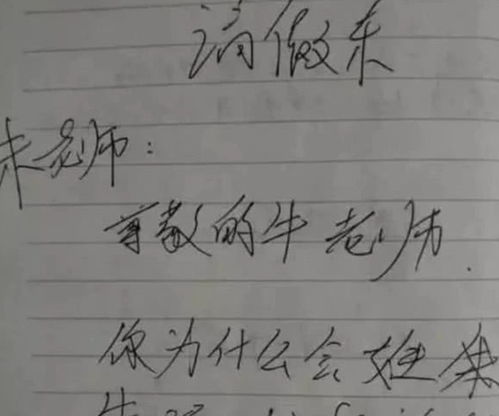 请假条
朱老师：
尊敬的牛老师.
你为什么会姓